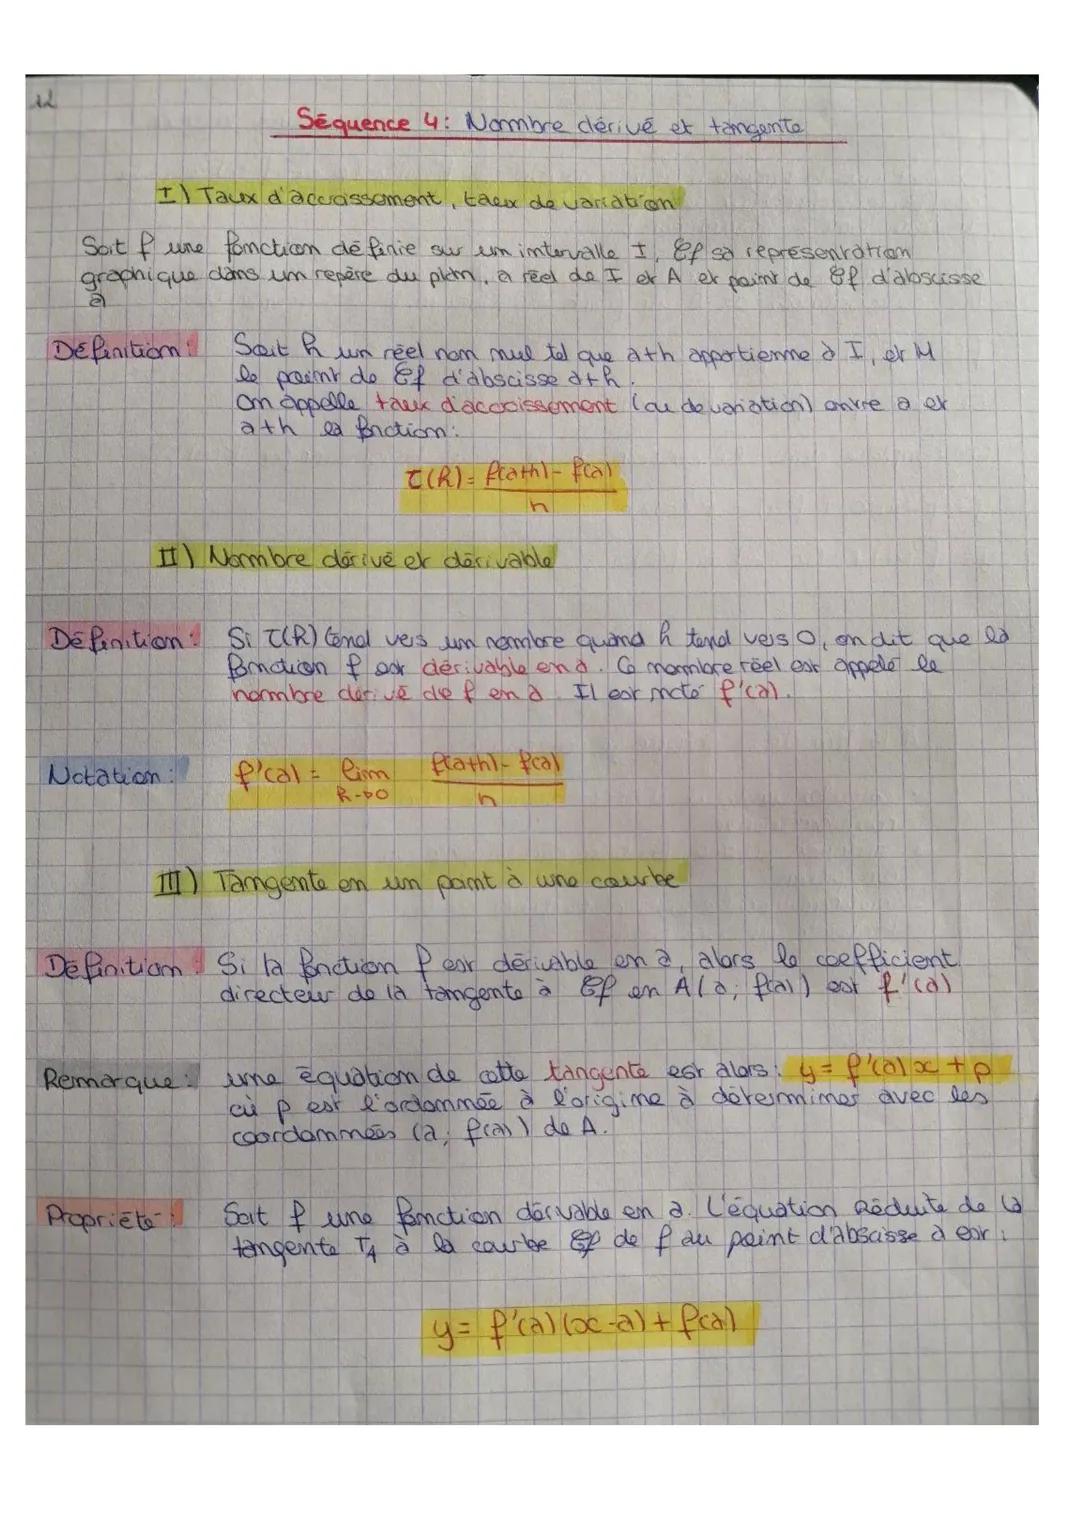 12
Séquence 4: Nombre dérivé et tangente
I) Taux d'accroissement, taux de variation
Soit f une fonction définie sur un intervalle I, Cf sa représentation
graphique dans un repère du plan, a réel de I et A et point de Cf d'abscisse
a
Définition: Soit h un réel non nul tel que a+h appartienne à I, et M
le point de Cf d'abscisse a+h.
on appelle taux d'accroissement (ou de variation) entre a et
a+h la fonction:
τ(h) = f(a+h) - f(a) / h
II) Nombre dérivé et dérivable
Définition: Si τ(h) tend vers un nombre quand h tend vers 0, on dit que la
fonction f est dérivable en a. Ce nombre réel est appelé le
nombre dérivé de f en a. Il est noté f'(a).
Notation: f'(a) = lim h→0 f(a+h) - f(a) / h
III) Tangente en un point à une courbe
Définition: Si la fonction f est dérivable en a, alors le coefficient
directeur de la tangente à Cf en A(a; f(a)) est f'(a)
Remarque: une équation de cette tangente est alors: y = f'(a)x + p
où p est l'ordonnée à l'origine à déterminer avec les
coordonnées (a; f(a)) de A.
Propriété: Soit f une fonction dérivable en a. L'équation Réduite de la
tangente TA à la courbe Cf de f au point d'abscisse a est:
y = f'(a)(x-a) + f(a)